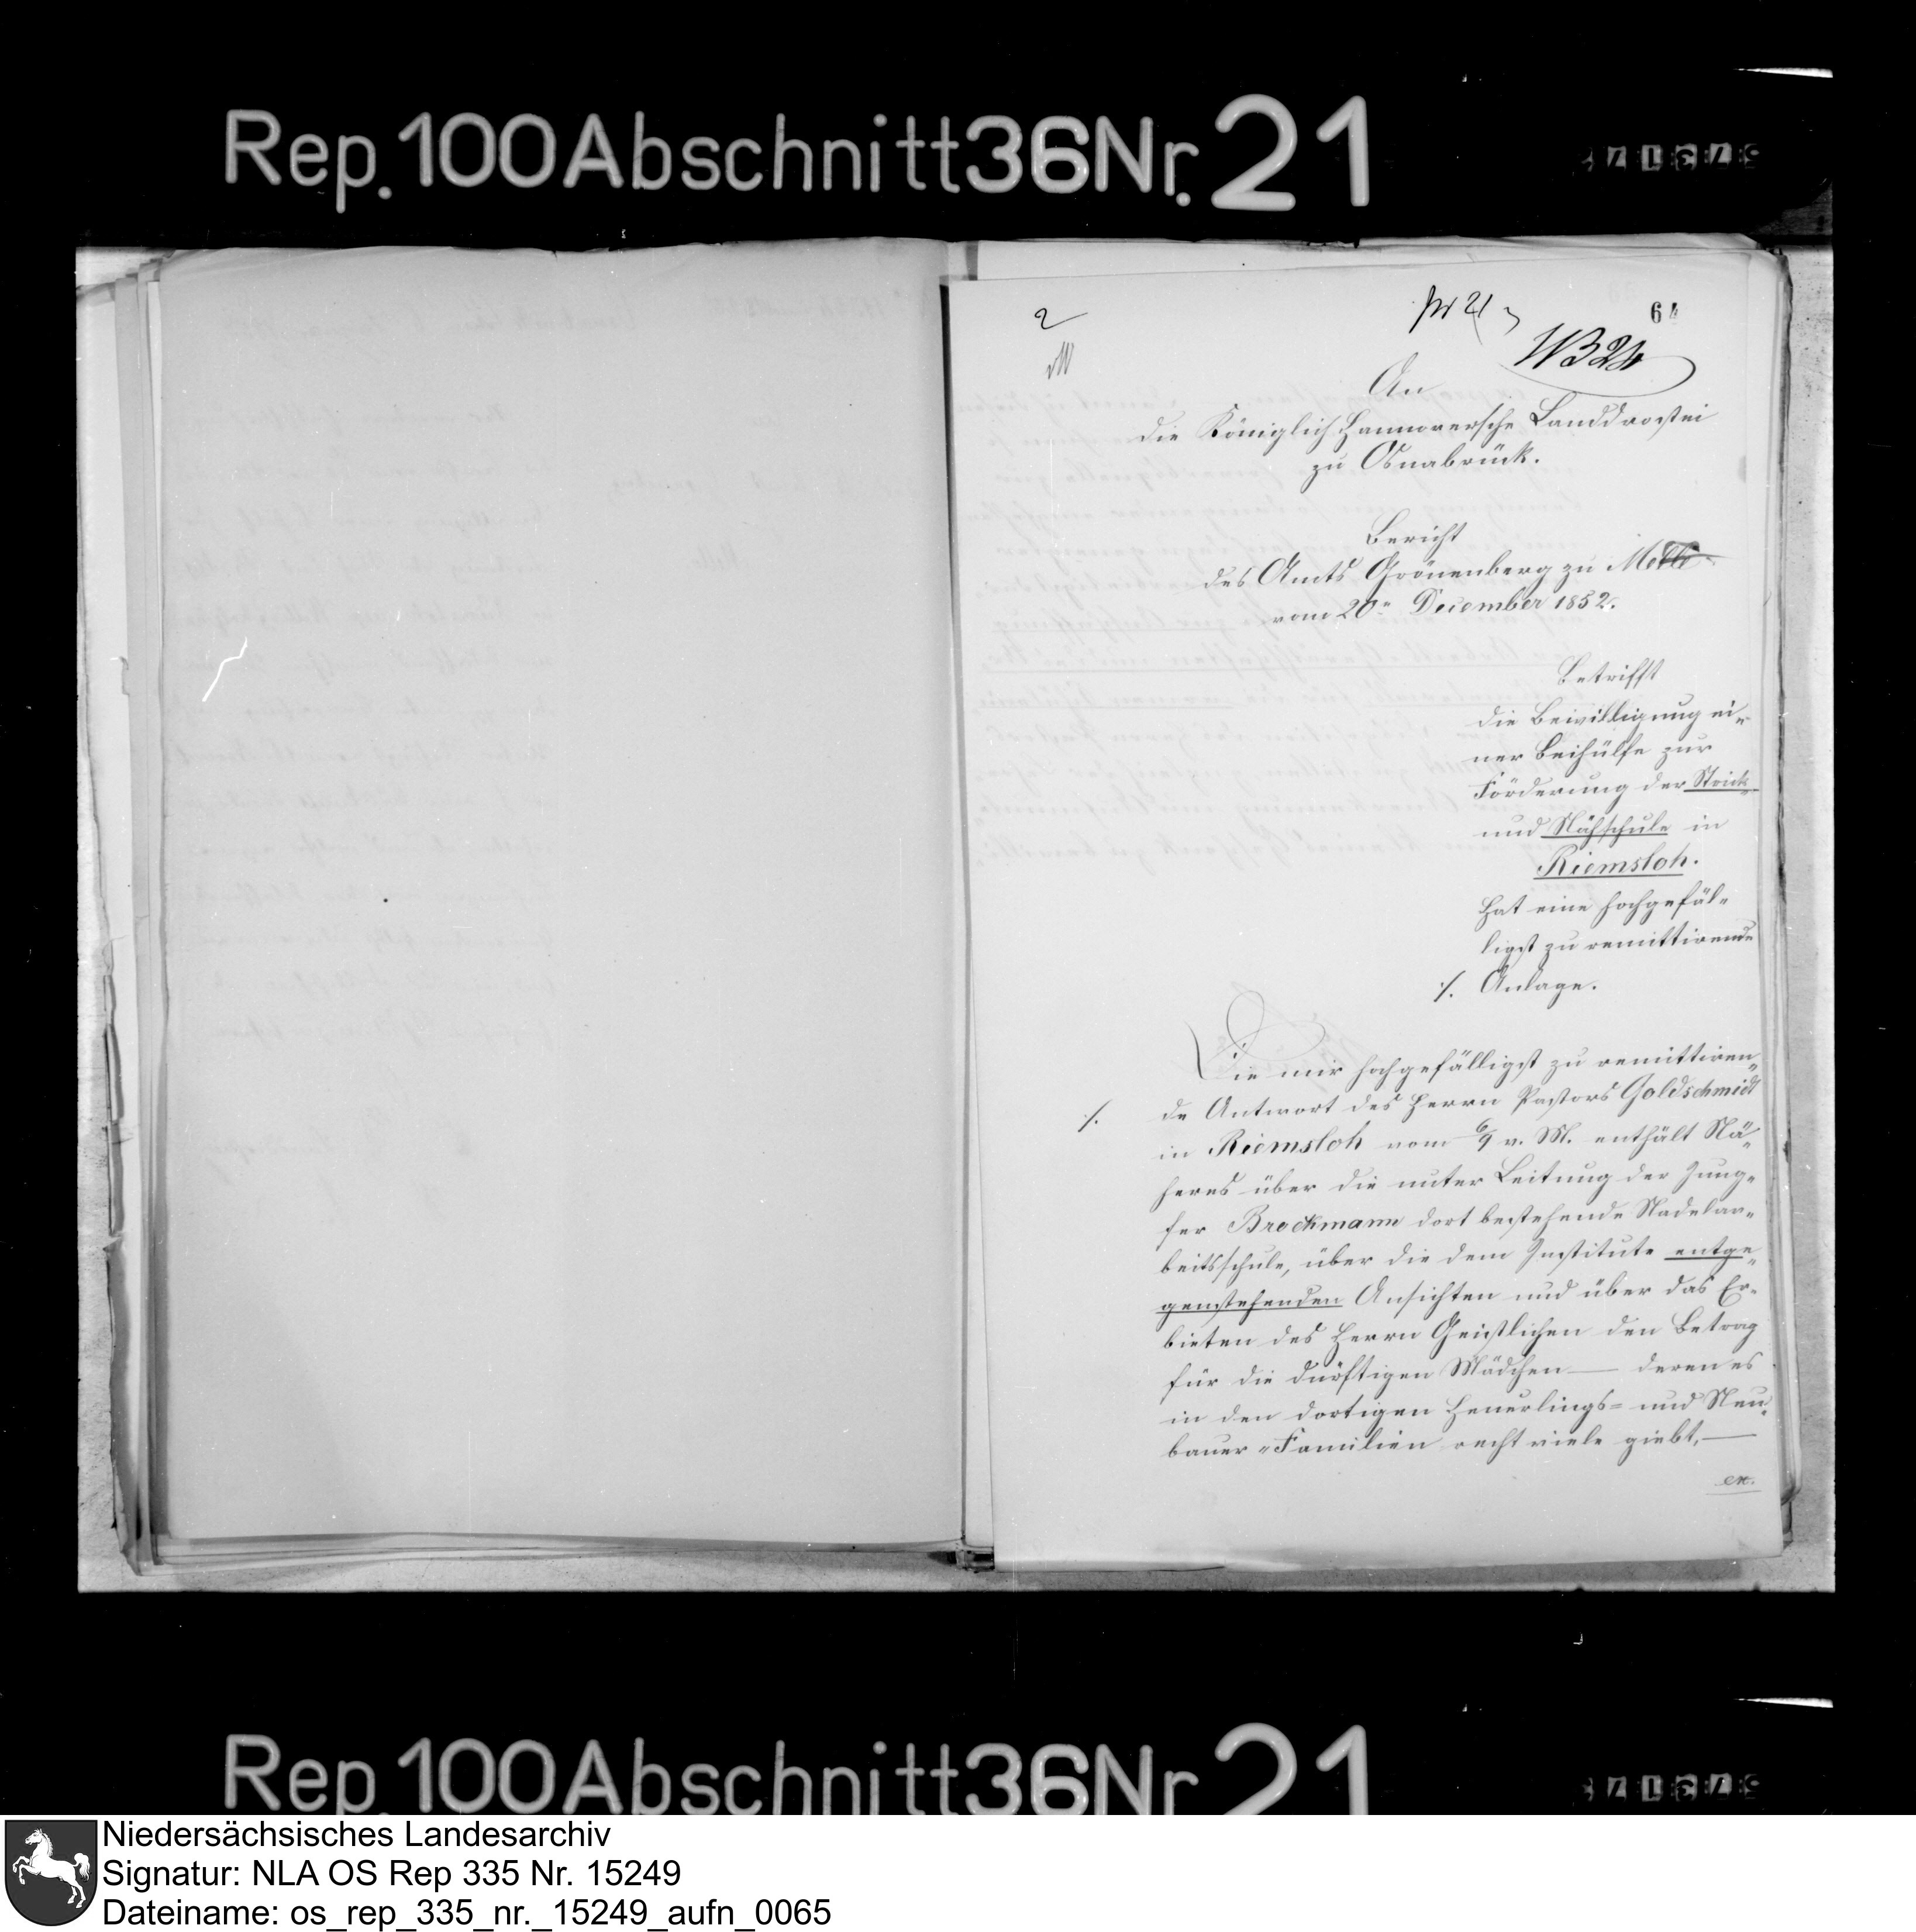 Rep. 100 Abschnitt 36 Nr. 21
64
2
An
die Königlich Hannoversche Landdrostei
zu Osnabrück.
Bericht
des Amts Grönenberg zu Melle
vom 20n December 1852.
Betrifft
die Bewilligung ei-
ner Beihülfe zur
Förderung der Strick-
und Nähschule in
Riemsloh.
Hat eine hochgefäl-
ligst zu remittirende
./. Anlage.
Die mir hochgefälligst zu remittiren-
./. de Antwort des Herrn Pastors Goldschmidt
in Riemsloh vom 6/9 v. M. enthält Nä-
heres über die unter Leitung der Jung-
fer Brockmann dort bestehende Nadelar-
beitsschule, über die dem Institute entge-
genstehenden Ansichten und über das Er-
bieten des Herrn Geistlichen den Betrag
für die dürftigen Mädchen — deren es
in den dortigen Heuerlings- und Neu-
bauer-Familien recht viele giebt, —
Rep. 100 Abschnitt 36 Nr. 21
Niedersächsisches Landesarchiv
Signatur: NLA OS Rep 335 Nr. 15249
Dateiname: os_rep_335_nr._15249_aufn_0065